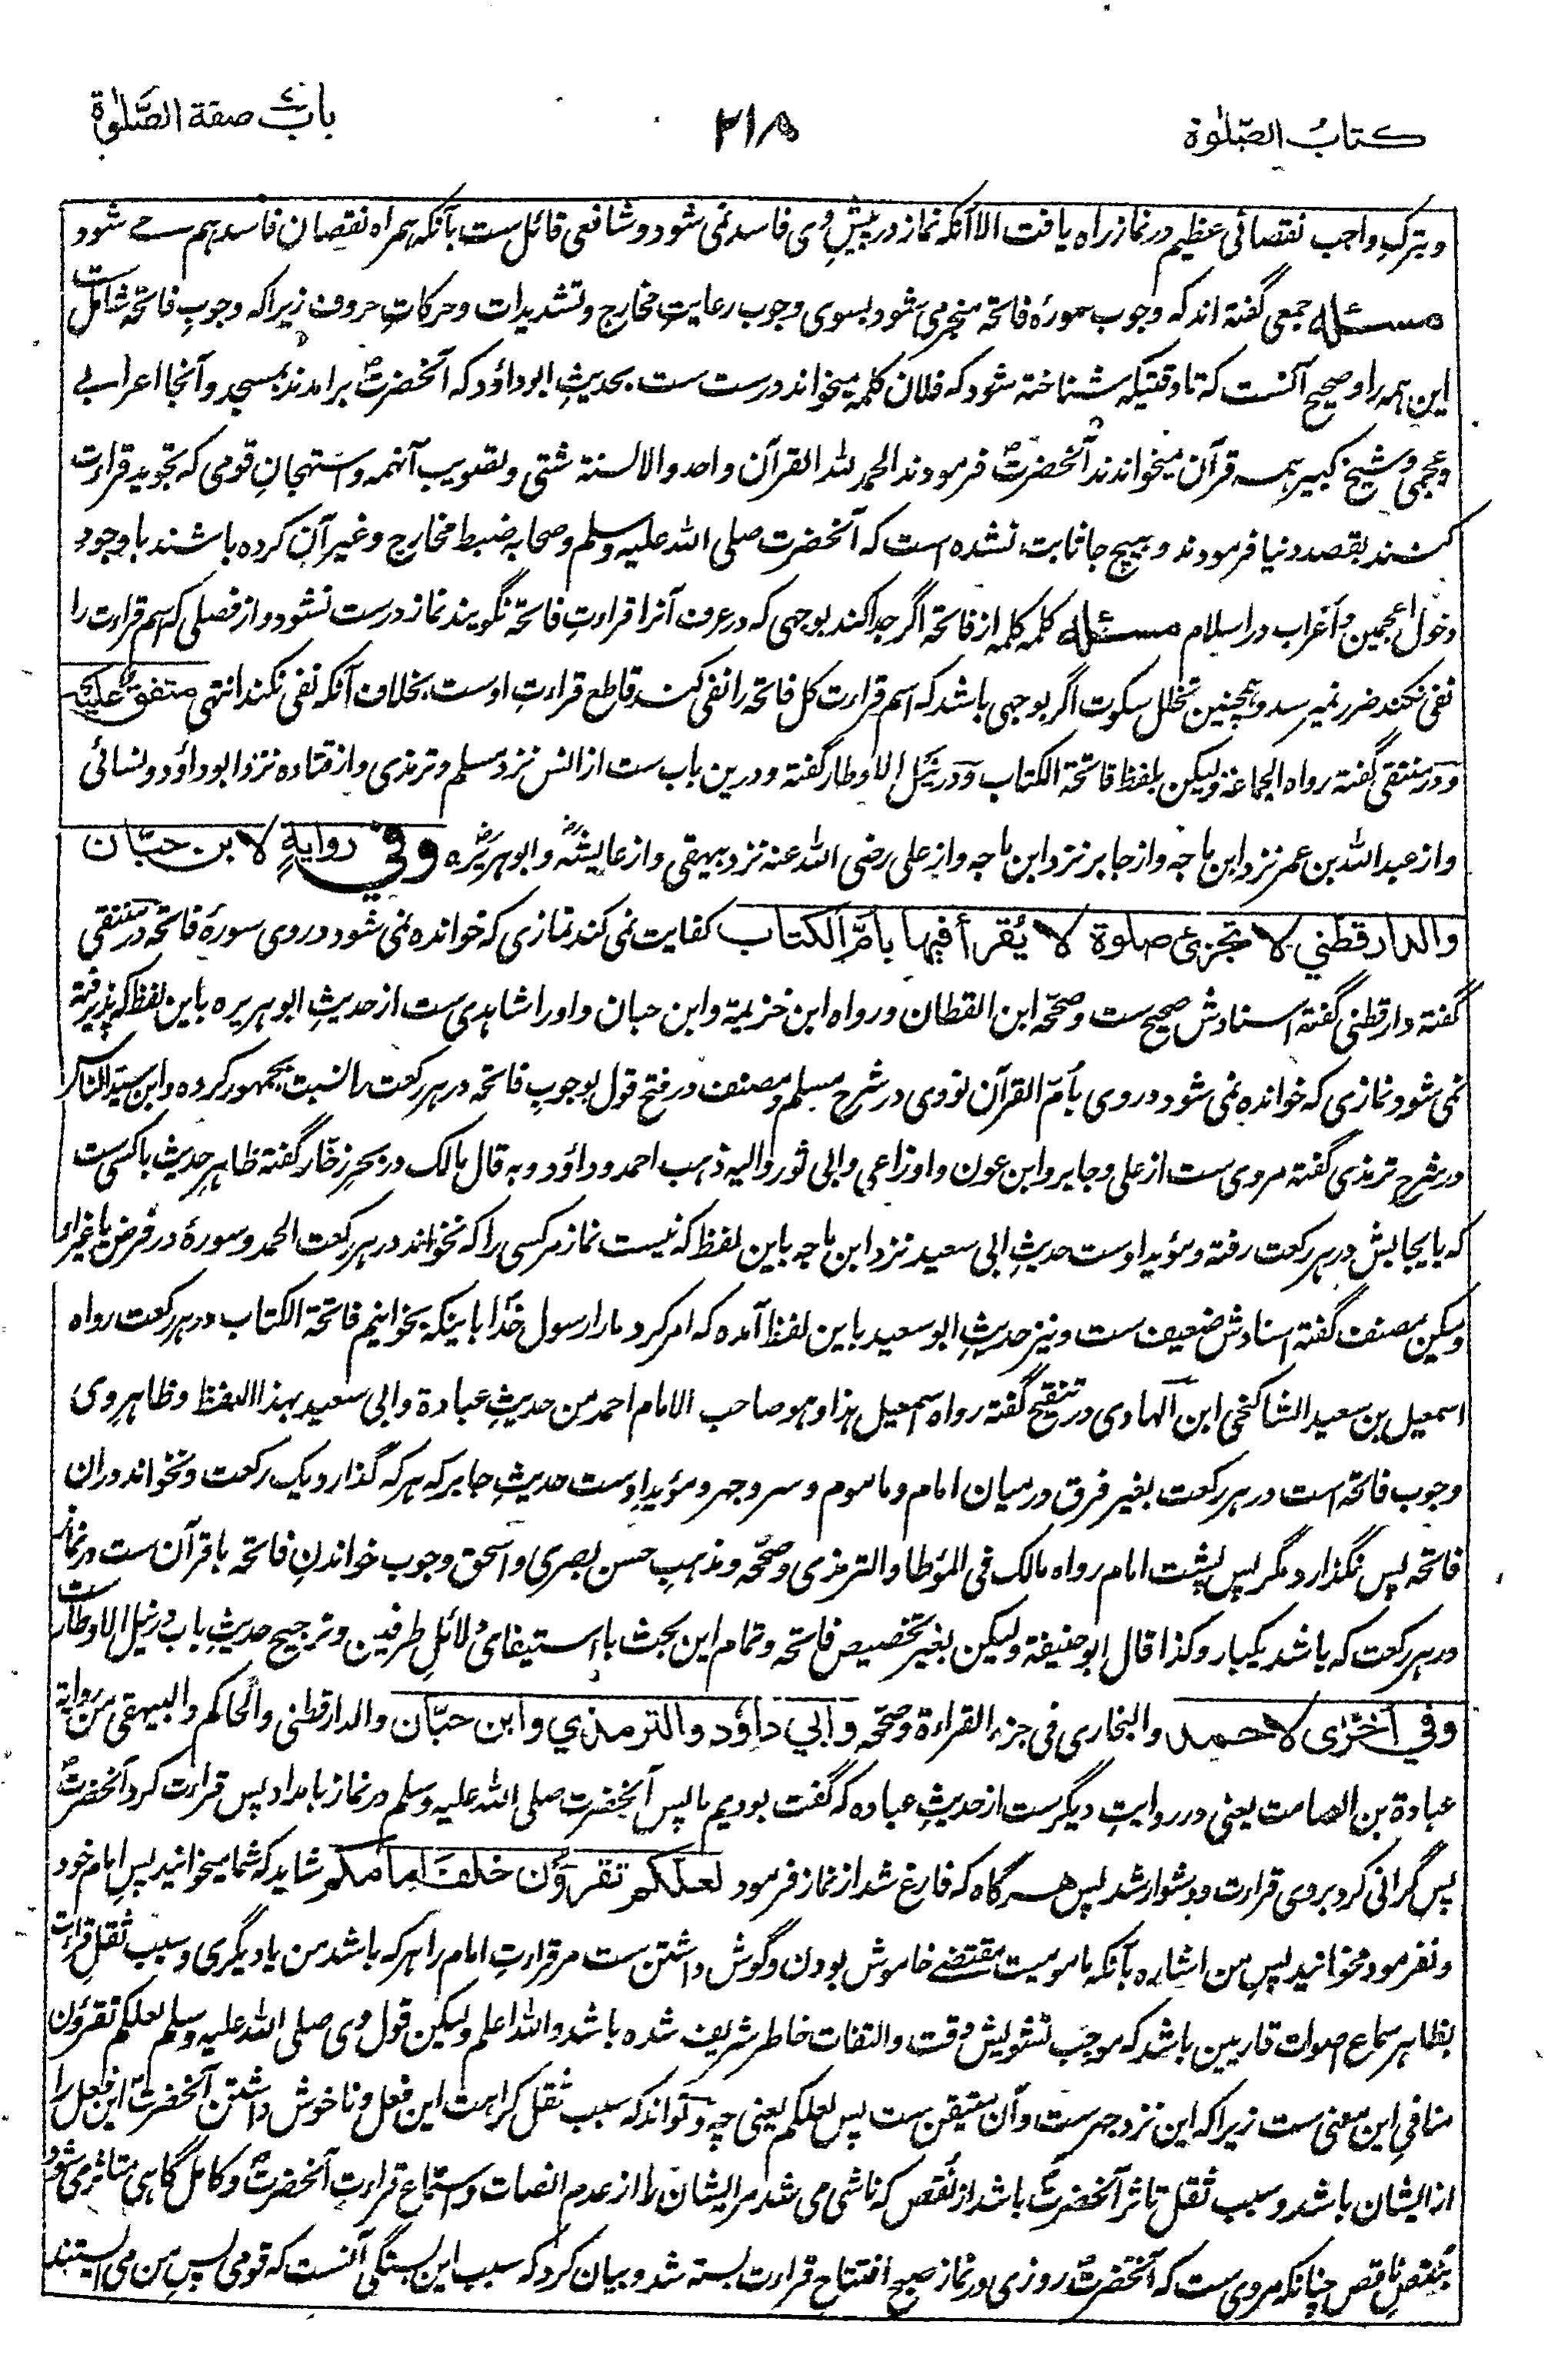 کتابُ الصّلٰوة
۲۱۸
بابُ صفة الصَّلٰوة
و بترکِ واجب نقصانی عظیم در نماز راه یافت الا آنکه نماز در پیشِ وی فاسد نمی شود و شافعی قائل ست بآنکه همراه نقصان فاسد هم مے شود
مسئله جمعی گفته اند که وجوب سورهٔ فاتحه منجر می شود بسوی وجوب رعایتِ مخارج و تشدیدات و حرکاتِ حروف زیرا که وجوبِ فاتحه شامل ست
این همه را و صحیح آنست که تا وقتیکه شناخته شود که فلان کلمه میخواند درست ست بحدیثِ ابوداؤد که آنحضرتؐ برامدند بمسجد و آنجا اعرابے
و عجمی و شیخ کبیر همه قرآن میخواندند آنحضرتؐ فرمودند الحمد لله القرآن واحد والالسنة شتی و تصویب آنهمه و استهجانِ قومی که تجوید قراءت
کنند بقصد دنیا فرمودند و بهیچ جا ثابت نشده است که آنحضرت صلی الله علیه وسلم و صحابه ضبط مخارج و غیر آن کرده باشند با وجود
دخول اعجمین و اعراب در اسلام مسئله کلمه کلمه از فاتحه اگر جدا کند بوجهی که در عرف آنرا قراءتِ فاتحه نگویند نماز درست نشود و از فصلی که اسم قراءت را
نفی نکند ضرر نمیرسد و همچنین تخلل سکوت اگر بوجهی باشد که اسم قراءت کل فاتحه را نفی کند قاطع قراءتِ اوست بخلاف آنکه نفی نکند انتهی متفق علیه
و در منتقی گفته رواه الجماعة ولیکن بلفظ فاتحة الکتاب و در نیل الاوطار گفته و درین باب ست از انس نزد مسلم و ترمذی و از قتاده نزد ابوداؤد و نسائی
و از عبدالله بن عمر نزد ابن ماجه و از جابر نزد ابن ماجه و از علی رضی الله عنه نزد بیهقی و از عایشهؓ و ابوهریرهؓ وفي روايةٍ لابن حبّان
والدارقطني لا تجزئ صلوة لا يُقرأ فيها بأمّ الكتاب کفایت نمی کند نمازی که خوانده نمی شود در وی سورهٔ فاتحه در منتقی
گفته دارقطنی گفته اسنادش صحیح ست و صححه ابن القطان و رواه ابن خزیمة و ابن حبان و او را شاهدی ست از حدیثِ ابوهریره باین لفظ که پذیرفته
نمی شود نمازی که خوانده نمی شود در وی بأمّ القرآن نووی در شرح مسلم و مصنف در فتح قول بوجوبِ فاتحه در هر رکعت را نسبت بجمهور کرده و ابن سید الناس
در شرحِ ترمذی گفته مروی ست از علی و جابر و ابن عون و اوزاعی و ابی ثور و الیه ذهب احمد و داؤد و به قال مالک در بحرِ زخّار گفته ظاهرِ حدیث با کسی ست
که بایجابش در هر رکعت رفته و مؤید اوست حدیثِ ابی سعید نزد ابن ماجه باین لفظ که نیست نماز مر کسی را که نخواند در هر رکعت الحمد و سورة در فرض یا غیر او
ولیکن مصنف گفته اسنادش ضعیف ست و نیز حدیثِ ابوسعید باین لفظ آمده که امر کرد ما را رسول خدا باینکه بخوانیم فاتحة الکتاب در هر رکعت رواه
اسمعیل بن سعید الشاکنجی ابن الهادی در تنقیح گفته رواه اسمعیل هذا وهو صاحب الامام احمد من حدیثِ عبادة وابی سعید بهذا اللفظ و ظاهرِ وی
وجوب فاتحه است در هر رکعت بغیر فرق درمیان امام و ماموم و سر و جهر و مؤید اوست حدیثِ جابر که هر که گذارد یک رکعت و نخواند دران
فاتحه پس نگذارد مگر پس پشت امام رواه مالک فی المؤطا والترمذی و صححه و مذهبِ حسن بصری و اسحق وجوب خواندنِ فاتحه با قرآن ست در نماز
در هر رکعت که باشد یکبار و کذا قال ابوحنیفة ولیکن بغیر تخصیص فاتحه و تمام این بحث با استیفای دلائلِ طرفین و ترجیح حدیثِ باب در نیل الاوطار ست
وفي أخرى لاحمد والبخاری فی جزء القراءة وصححه وأبي داؤد والترمذي وابن حبّان والدارقطنی والحاکم والبیهقی من روایة
عبادة بن الصامت یعنی در روایتِ دیگر ست از حدیثِ عباده که گفت بودیم ما پس آنحضرت صلی الله علیه وسلم در نماز بامداد پس قراءت کرد آنحضرتؐ
پس گرانی کرد بر وی قراءت و دشوار شد پس هرگاه که فارغ شد از نماز فرمود لعلکم تقرؤن خلف امامکم شاید که شما میخوانید پسِ امام خود
و نفرمود مخوانید پسِ من اشاره بآنکه مامومیت مقتضے خاموش بودن و گوش داشتن ست مر قراءتِ امام را هر که باشد من یا دیگری و سبب ثقلِ قراءت
بظاهر سماع اصوات قاریین باشد که موجب تشویش وقت و التفات خاطر شریف شده باشد والله اعلم ولیکن قول وی صلی الله علیه وسلم لعلکم تقرؤن
منافیِ این معنی ست زیرا که این نزد جهر ست و آن متیقن ست پس لعلکم یعنی چه و تواند که سبب ثقل کراهت این فعل و ناخوش داشتن آنحضرتؐ این فعل را
از ایشان باشد و سبب ثقل تاثر آنحضرتؐ باشد از نقص که ناشی می شد مر ایشان را از عدم انصات و استماع قراءتِ آنحضرتؐ و کامل گاهی متاثر می شود
بنقصِ ناقص چنانکه مروی ست که آنحضرتؐ روزی در نماز صبح افتتاحِ قراءت بسته شد و بیان کرد که سبب این بستگی آنست که قومی پسِ من می ایستند